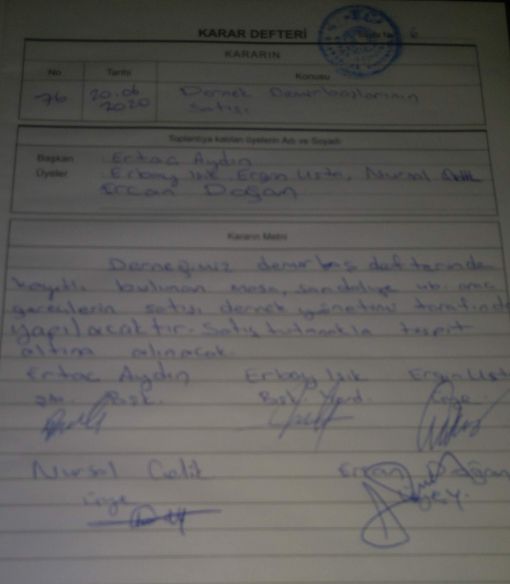 KARAR DEFTERİ
6
KARARIN
No Tarihi Konusu
76 20.06 Dernek Demirbaşlarının
2020 Satışı
Toplantıya katılan üyelerin Adı ve Soyadı
Başkan : Ertac Aydın
Üyeler : Erbay Işık Ergin Usta, Nursal Çelik
Ercan Doğan
Kararın Metni
Derneğimiz demirbaş defterinde
kayıtlı bulunan masa, sandalye vb. araç
gereçlerin satışı dernek yönetimi tarafında
yapılacaktır. Satış tutanakla tespit
altına alınacak.
Ertac Aydın Erbay Işık Ergin Usta
Başk. Başk. Yard. Üye
Nursal Çelik Ercan Doğan
Üye Üye